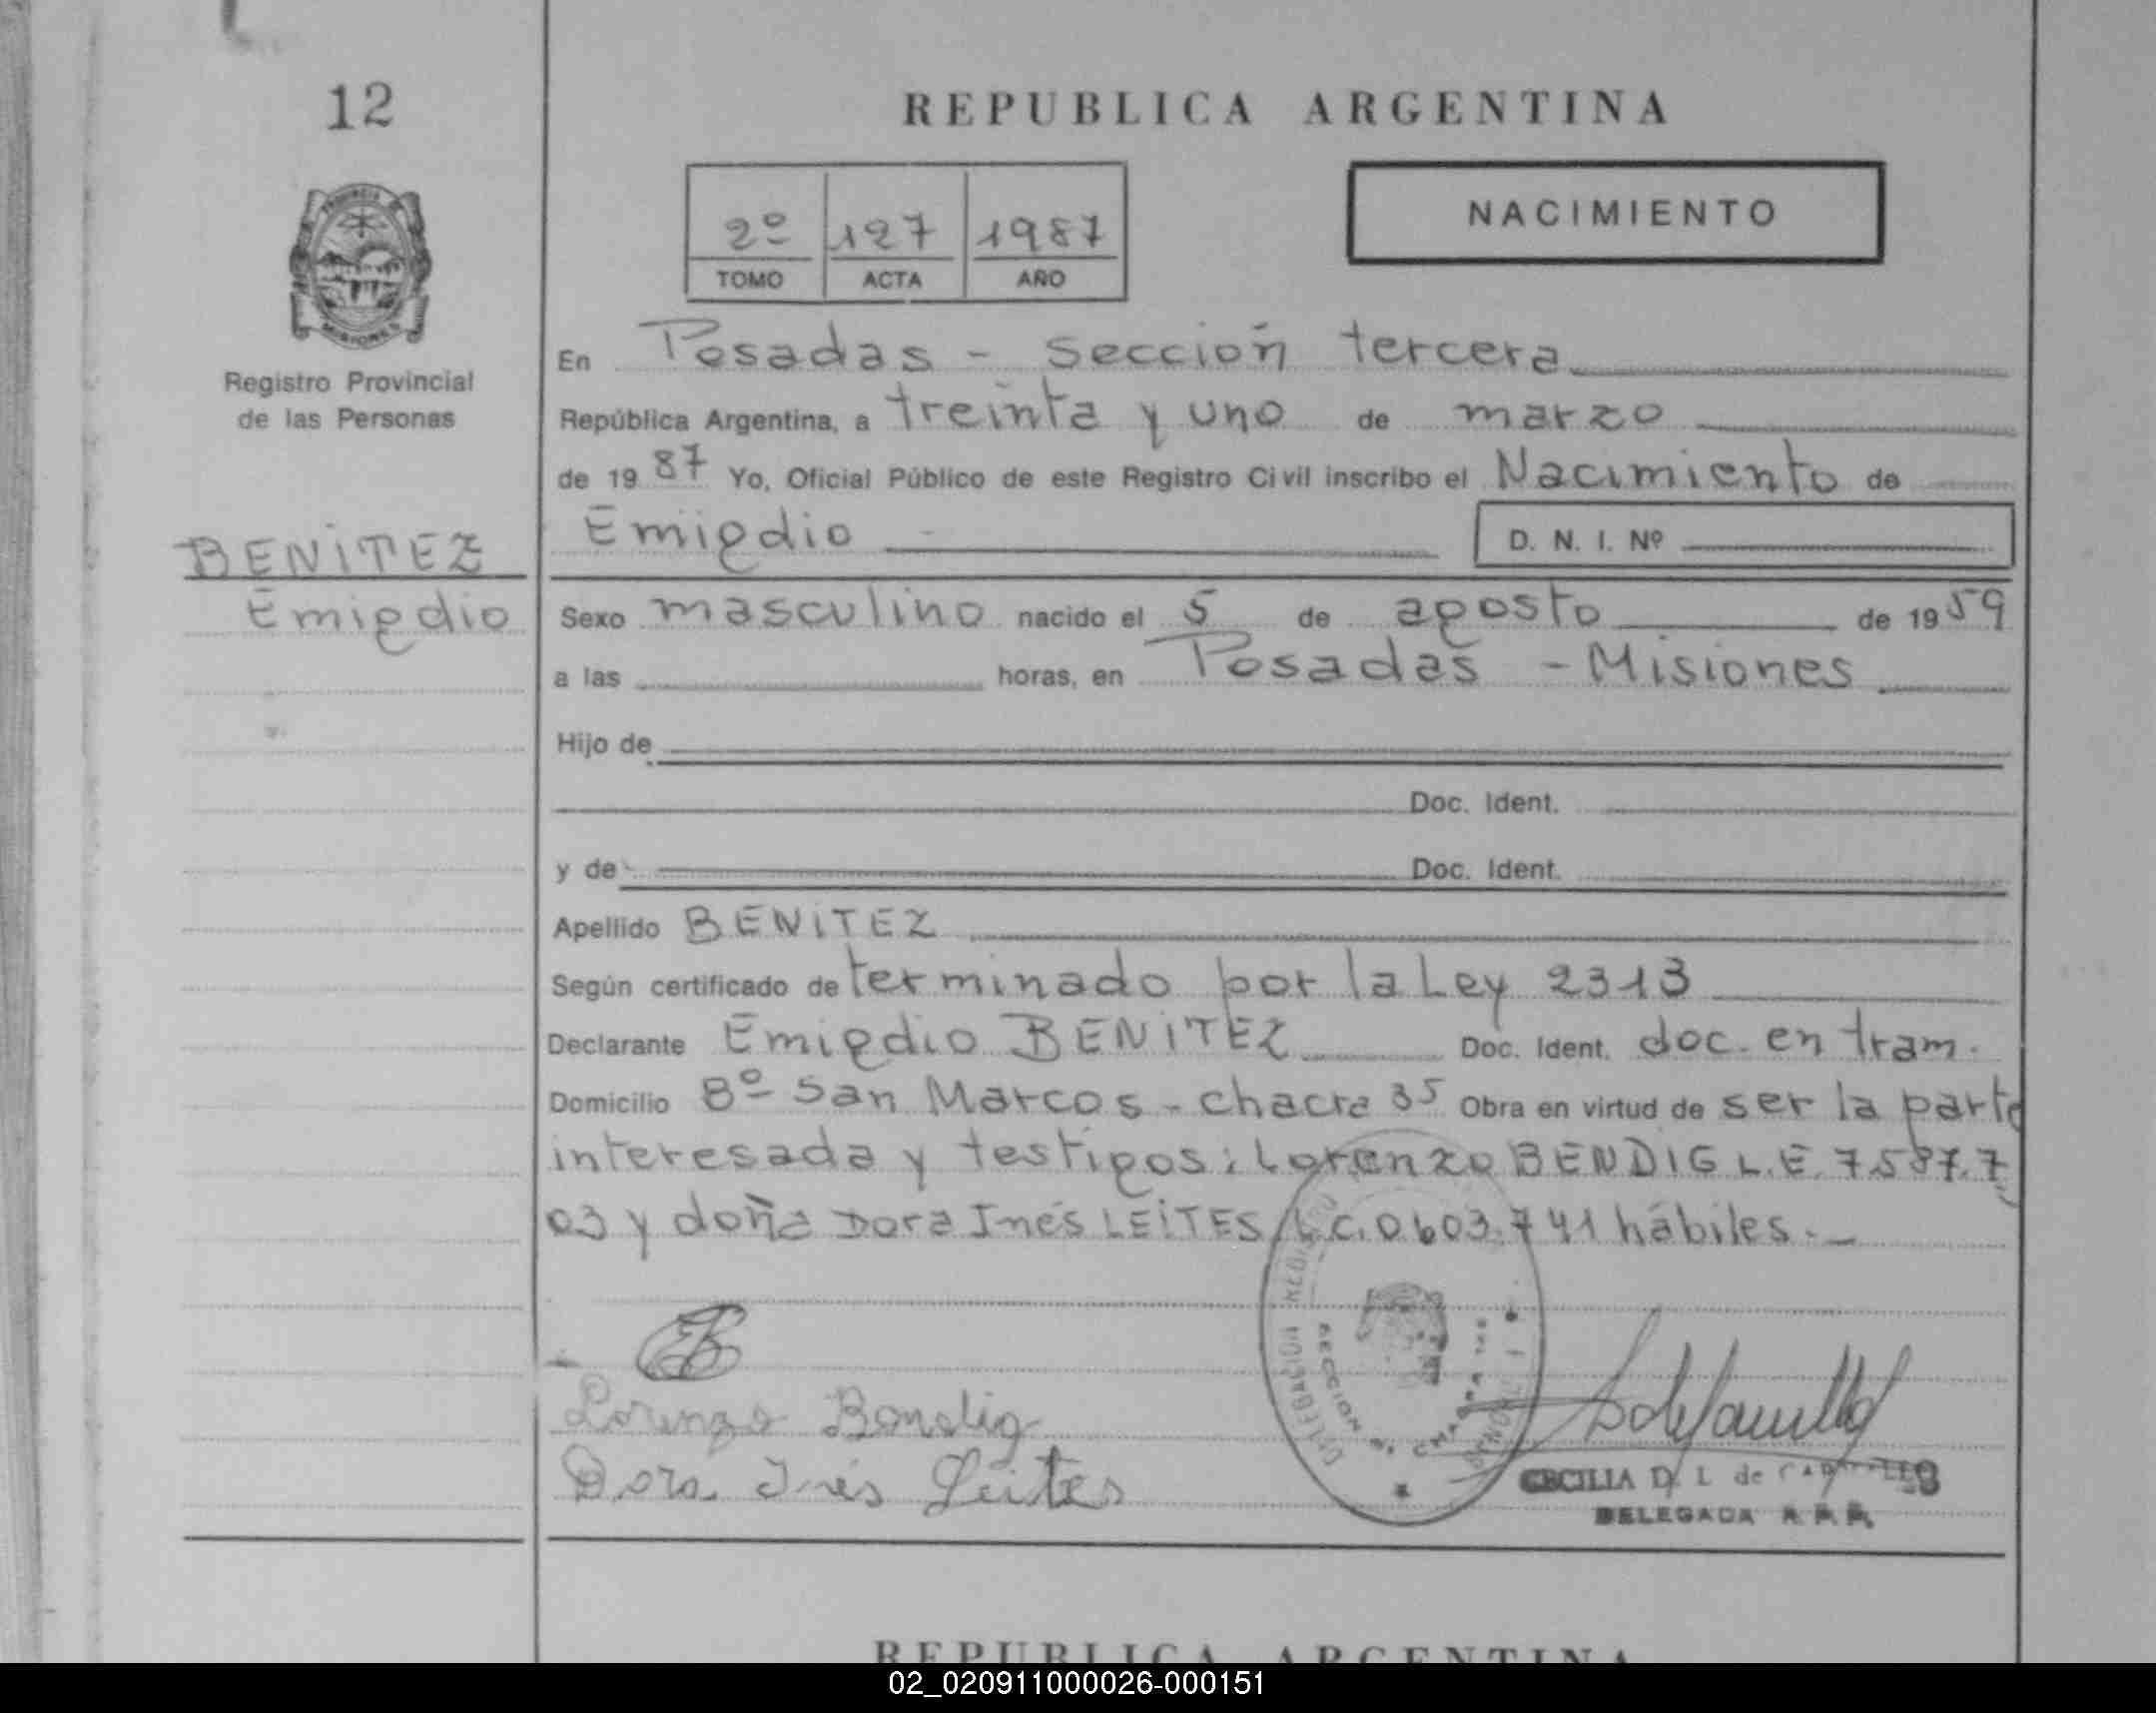 12
REPUBLICA ARGENTINA
2º 127 1987
TOMO ACTA AÑO
NACIMIENTO
Registro Provincial
de las Personas
BENITEZ
Emigdio
En Posadas - Sección tercera
República Argentina, a treinta y uno de marzo
de 19 87 Yo, Oficial Público de este Registro Civil inscribo el Nacimiento de
Emigdio D. N. I. Nº
Sexo masculino nacido el 5 de agosto de 19 59
a las horas, en Posadas - Misiones
Hijo de
Doc. Ident.
y de Doc. Ident.
Apellido BENITEZ
Según certificado de terminado por la Ley 2313
Declarante Emigdio BENITEZ Doc. Ident. doc. en tram.
Domicilio Bº San Marcos - chacra 35 Obra en virtud de ser la parte
interesada y testigos: Lorenzo BENDIG L.E. 7.587.7
03 y doña Dora Inés LEITES L.C. 0.603.741 hábiles.-
Lorenzo Bendig
Dora Inés Leites
DELEGACION
SECCION
CECILIA D. L de
DELEGADA R. P. P.
REPUBLICA ARGENTINA
02_020911000026-000151